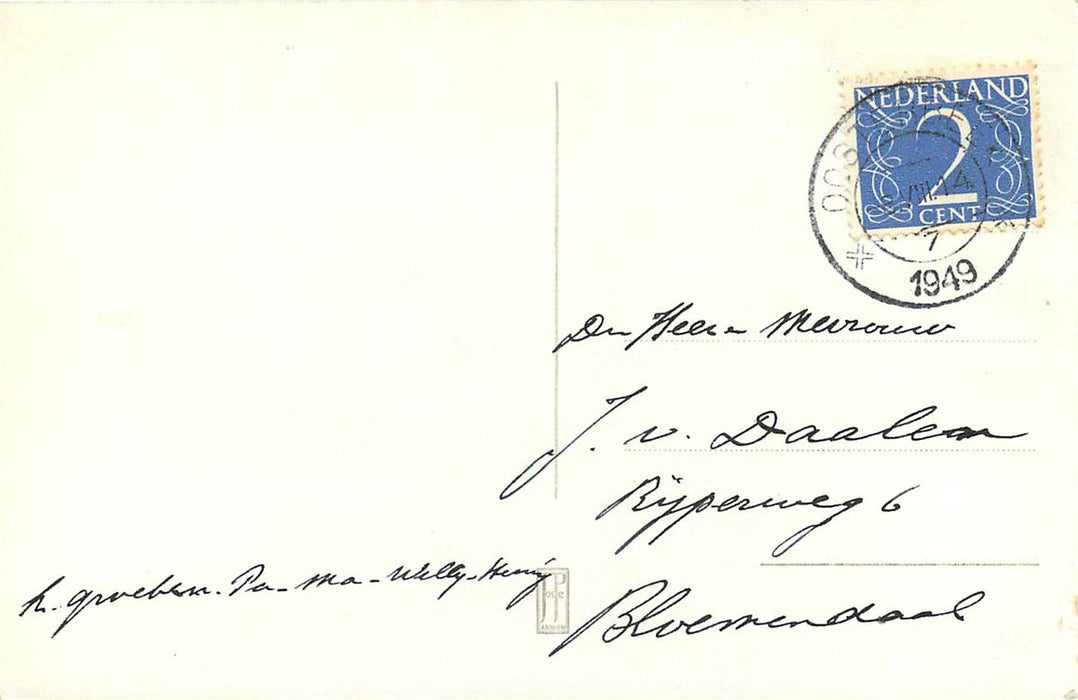 NEDERLAND
2
CENT
OOSTERBEEK
VIII.14
7
1949
Den Heer en Mevrouw
J. v. Daalen
Rijperweg 6
Bloemendaal
h. groeten. Pa - Ma - Willy - Henny
JosPé
ARNHEM